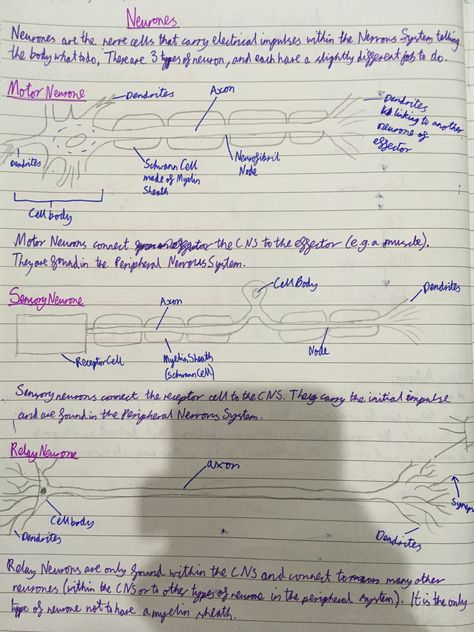 Neurones
Neurones are the nerve cells that carry electrical impulses within the Nervous System telling
the body what to do. There are 3 types of neuron, and each have a slightly different job to do.
Motor Neurone
Dendrites
Axon
Dendrites
linking to another
neurone of
effector
Dendrites
Schwann Cell
made of Myelin
Sheath
Neurofibril
Node
Cell body
Motor Neurons connect the CNS to the effector (e.g. a muscle).
They are found in the Peripheral Nervous System.
Sensory Neurone
Cell Body
Axon
Dendrites
Receptor Cell
Myelin Sheath
(schwann Cell)
Node
Sensory neurons connect the receptor cell to the CNS. They carry the initial impulse
and are found in the Peripheral Nervous System.
Relay Neurone
axon
Cell body
Dendrites
Dendrites
Relay Neurons are only found within the CNS and connect to many other
neurones (within the CNS or to other types of neurone in the peripheral system). It is the only
type of neurone not to have a myelin sheath.